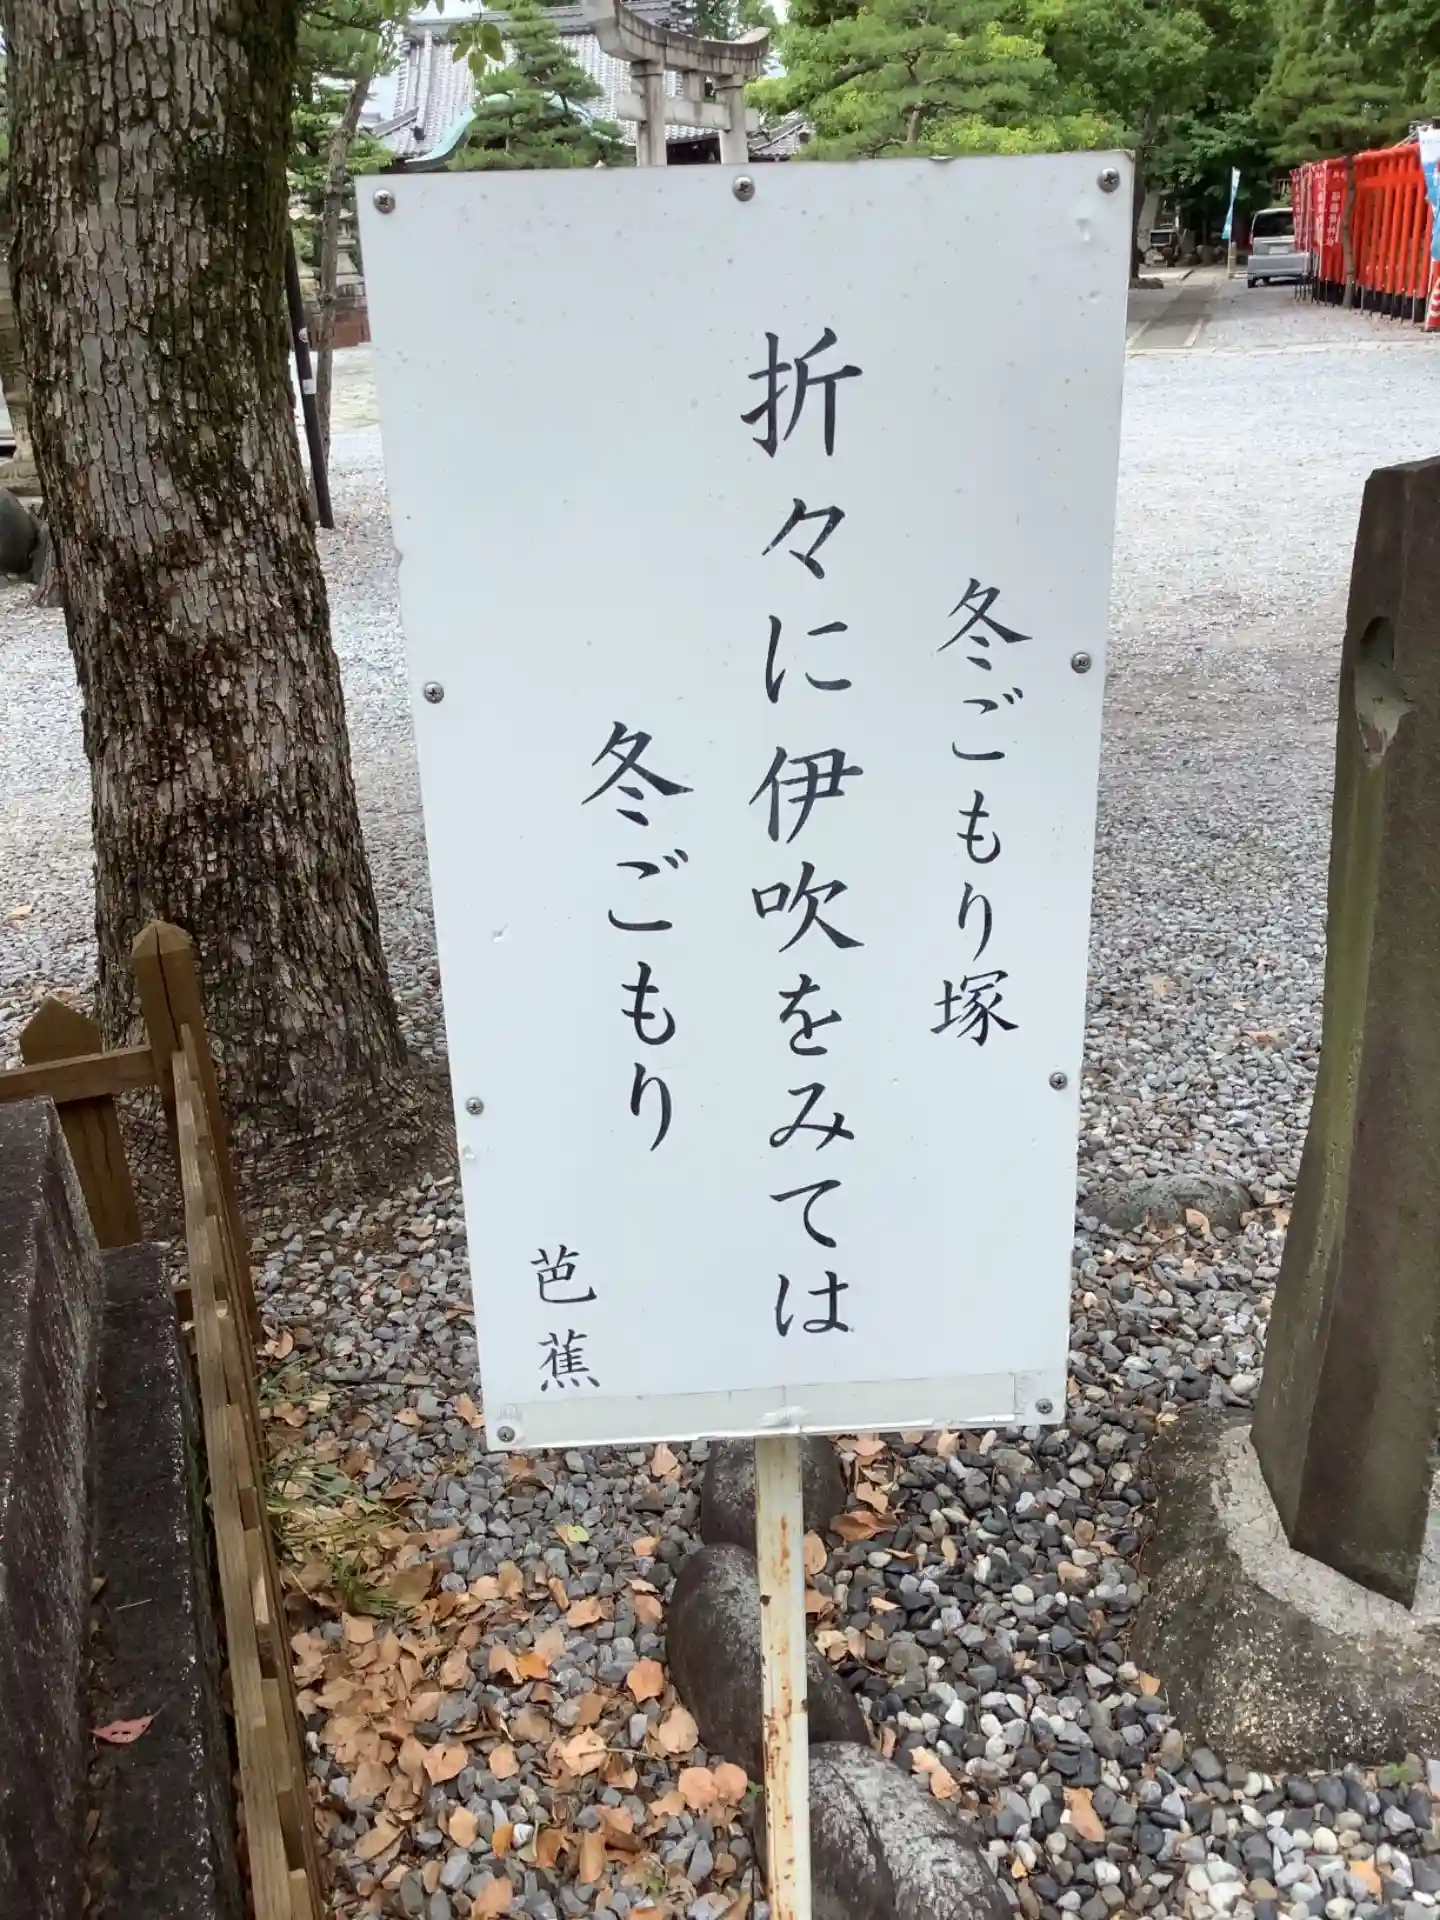 冬ごもり塚
折々に伊吹をみては
冬ごもり
芭蕉